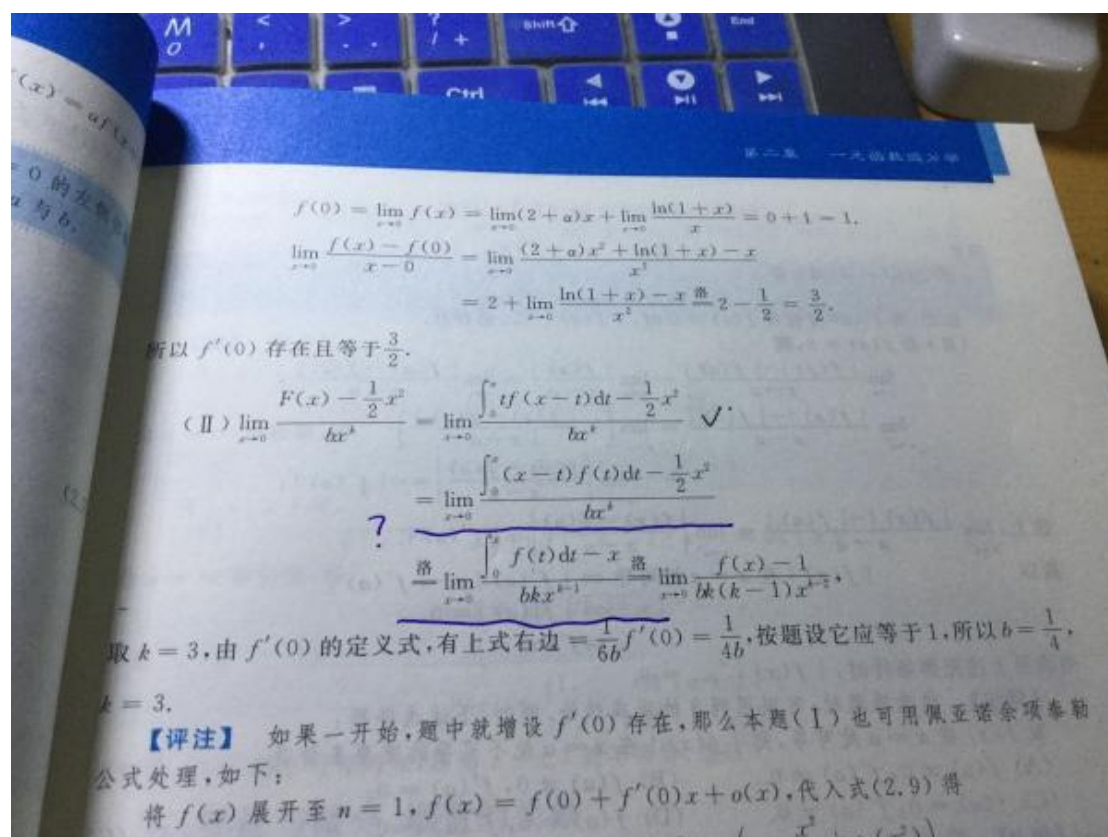 M
O
<
,
>
.
?
/ +
Shift
End
Ctrl
(x) = af(x
= 0 的左
a 与 b.
第二章 一元函数微分学
f(0) = lim_{x→0} f(x) = lim_{x→0}(2 + α)x + lim_{x→0} ln(1 + x)/x = 0 + 1 = 1.
lim_{x→0} (f(x) − f(0))/(x − 0) = lim_{x→0} ((2 + α)x² + ln(1 + x) − x)/x²
= 2 + lim_{x→0} (ln(1 + x) − x)/x² 洛= 2 − 1/2 = 3/2.
所以 f′(0) 存在且等于 3/2.
(Ⅱ) lim_{x→0} (F(x) − 1/2 x²)/(bx^k) = lim_{x→0} (∫_0^x tf(x − t)dt − 1/2 x²)/(bx^k) ✓
= lim_{x→0} (∫_0^x (x − t)f(t)dt − 1/2 x²)/(bx^k)
?
洛= lim_{x→0} (∫_0^x f(t)dt − x)/(bkx^{k−1}) 洛= lim_{x→0} (f(x) − 1)/(bk(k − 1)x^{k−2}),
取 k = 3,由 f′(0) 的定义式,有上式右边 = 1/(6b) f′(0) = 1/(4b),按题设它应等于1,所以 b = 1/4,
k = 3.
【评注】 如果一开始,题中就增设 f′(0) 存在,那么本题(Ⅰ)也可用佩亚诺余项泰勒
公式处理,如下:
将 f(x) 展开至 n = 1, f(x) = f(0) + f′(0)x + o(x),代入式(2.9)得